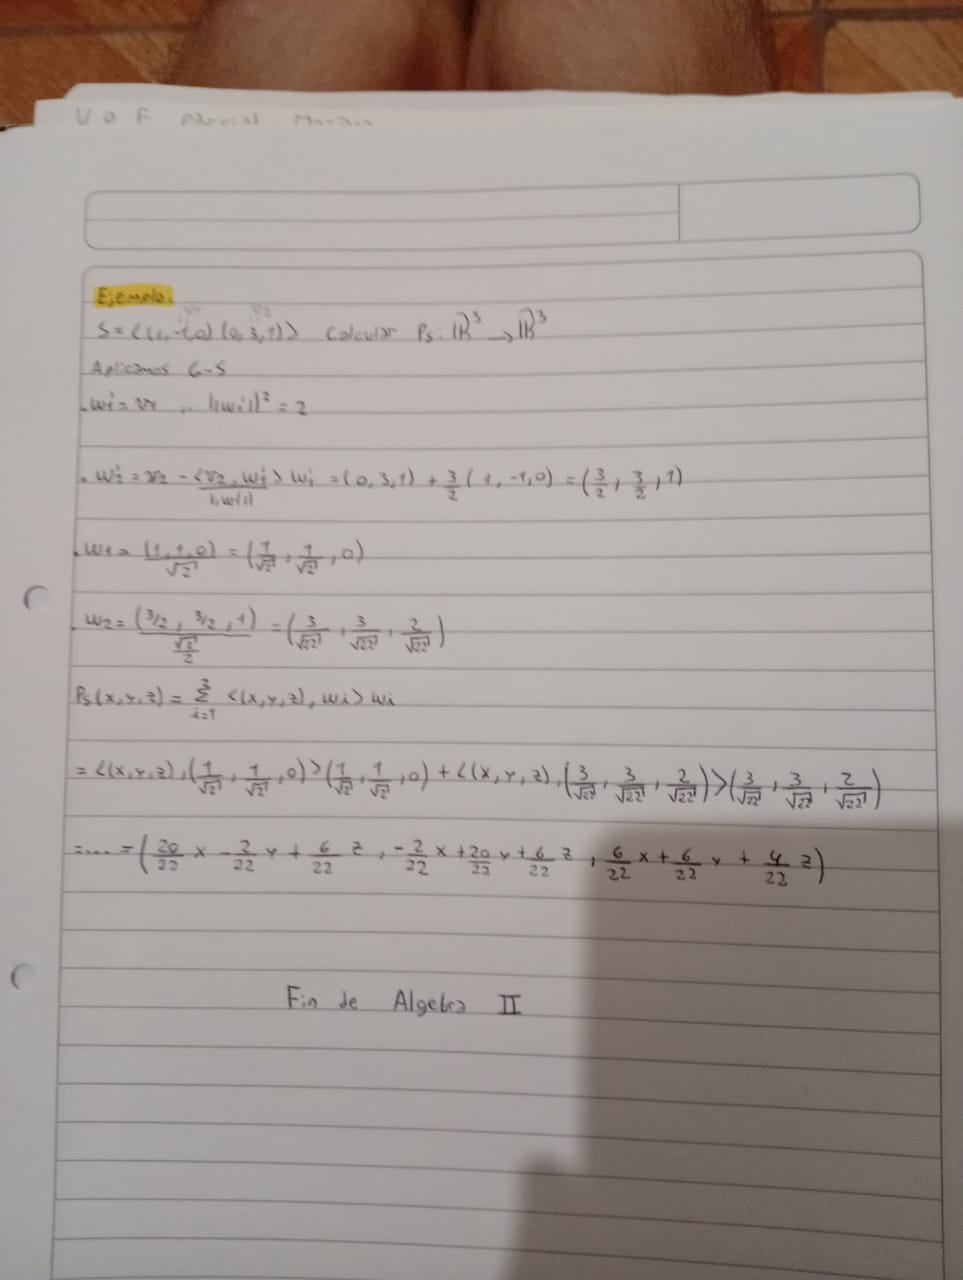 V o F parcial
Ejemplo.
v1 v2
S = <(1,-1,0)(0,3,1)> Calcular Ps: ℝ³ → ℝ³
Aplicamos G-S
. w1' = v1 .. ||w1'||² = 2
. w2' = v2 - <v2, w1'>/||w1'|| w1' = (0,3,1) + 3/2 (1,-1,0) = (3/2, 3/2, 1)
. w1 = (1,1,0)/√2 = (1/√2, 1/√2, 0)
. w2 = (3/2, 3/2, 1)/(√2/2) = (3/√22, 3/√22, 2/√22)
Ps(x,y,z) = Σ_{i=1}^{3} <(x,y,z), wi> wi
= <(x,y,z), (1/√2, 1/√2, 0)> (1/√2, 1/√2, 0) + <(x,y,z), (3/√22, 3/√22, 2/√22)> (3/√22, 3/√22, 2/√22)
= .... = (20/22 x - 2/22 y + 6/22 z, -2/22 x + 20/22 y + 6/22 z, 6/22 x + 6/22 y + 4/22 z)
Fin de Algebra II